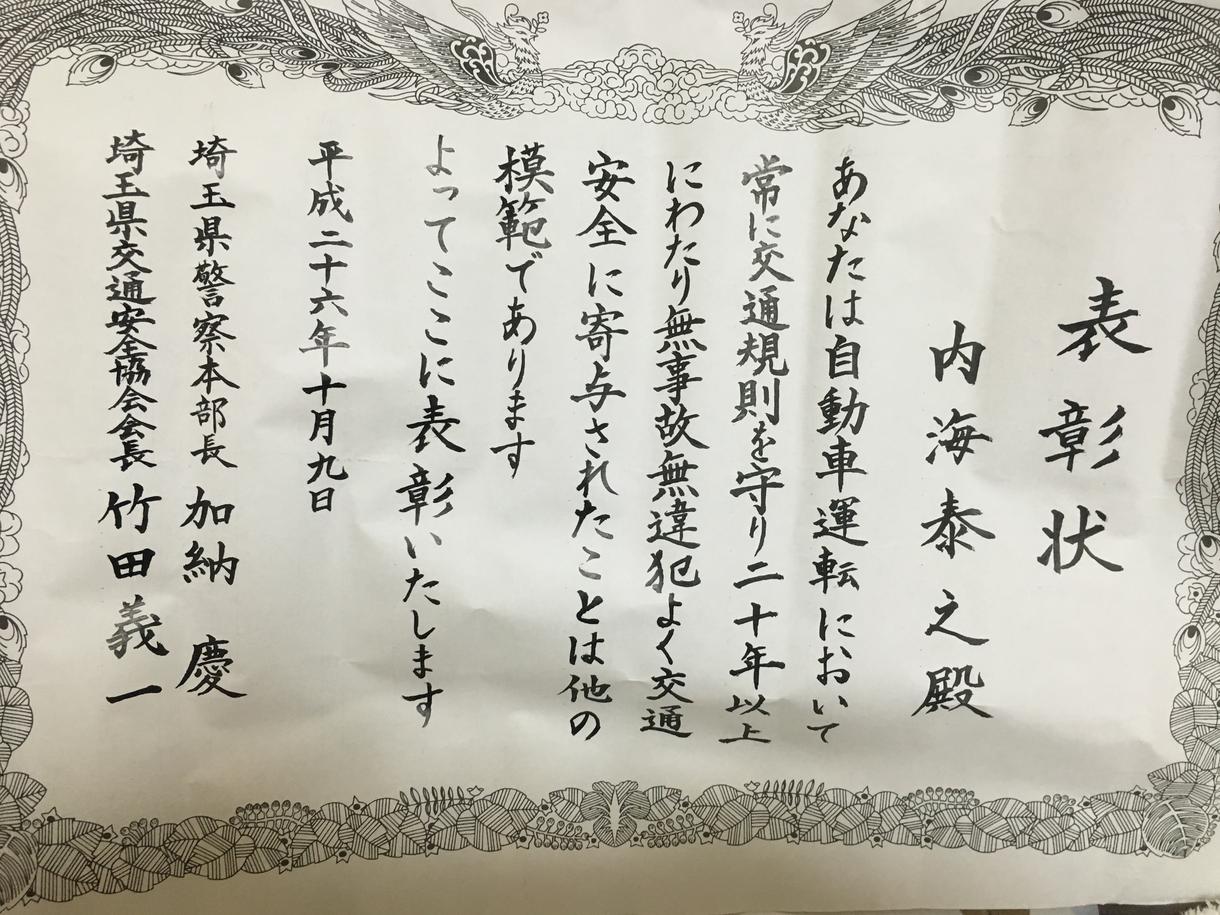 表彰状
内海泰之殿
あなたは自動車運転において
常に交通規則を守り二十年以上
にわたり無事故無違犯よく交通
安全に寄与されたことは他の
模範であります
よってここに表彰いたします
平成二十六年十月九日
埼玉県警察本部長 加納 慶
埼玉県交通安全協会会長 竹田義一